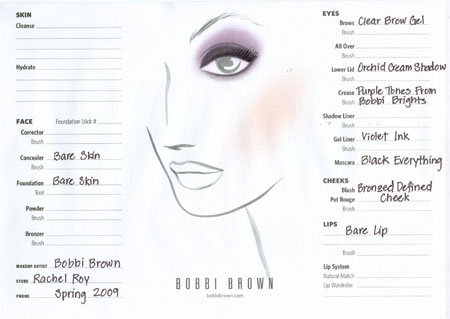 SKIN
Cleanse
Hydrate
FACE Foundation Stick #
Corrector
Brush
Concealer Bare Skin
Brush
Foundation Bare Skin
Tool
Powder
Brush
Bronzer
Brush
MAKEUP ARTIST Bobbi Brown
STORE Rachel Roy
PHONE Spring 2009
BOBBI BROWN
bobbibrown.com
EYES
Brows Clear Brow Gel
Brush
All Over
Brush
Lower Lid Orchid Cream Shadow
Brush
Crease Purple Tones From
Brush Bobbi Brights
Shadow Liner
Brush
Gel Liner Violet Ink
Brush
Mascara Black Everything
CHEEKS
Blush Bronzed Defined
Pot Rouge Cheek
Brush
LIPS
Bare Lip
Brush
Lip System
Natural Match
Lip Wardrobe